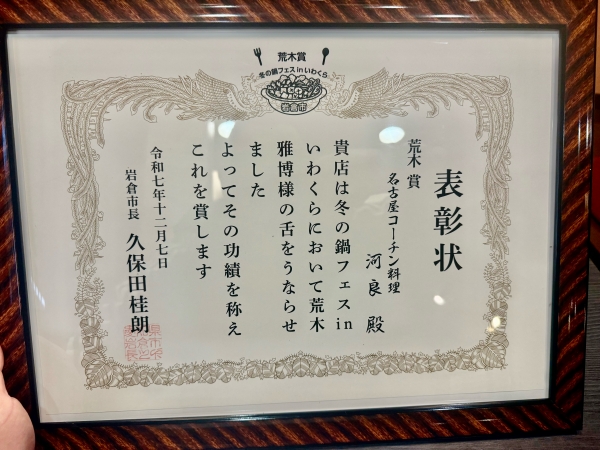 荒木賞
冬の鍋フェスinいわくら
岩倉市
表彰状
荒木賞
名古屋コーチン料理
河良殿
貴店は冬の鍋フェスin
いわくらにおいて荒木
雅博様の舌をうならせ
ました
よってその功績を称え
これを賞します
令和七年十二月七日
岩倉市長 久保田桂朗